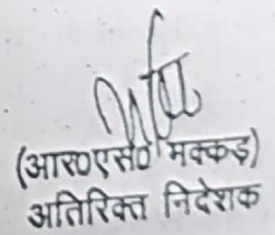 (आर०एस० मक्कड़)
अतिरिक्त निदेशक